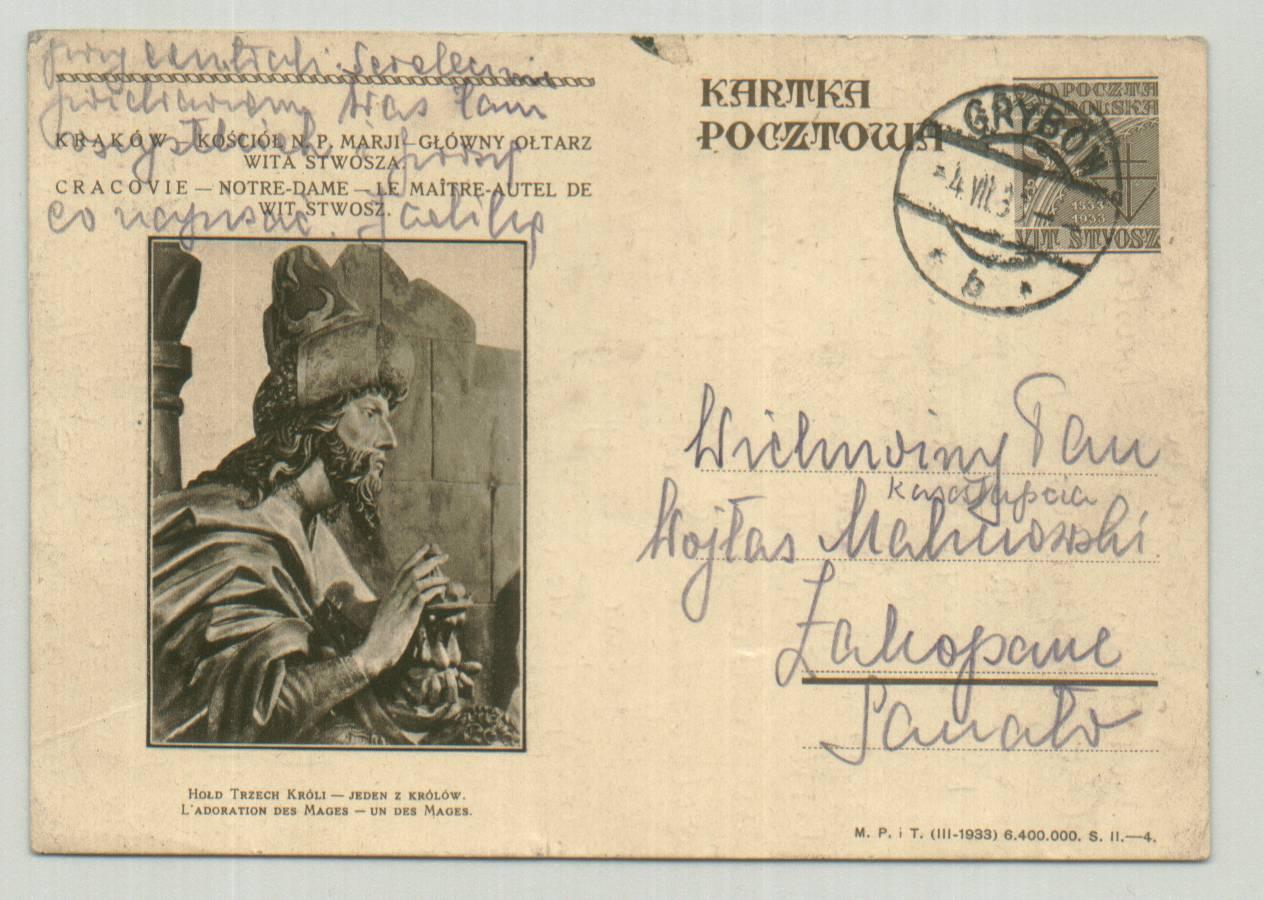 Was tam
KRAKÓW — KOŚCIÓŁ N. P. MARJI — GŁÓWNY OŁTARZ
WITA STWOSZA.
CRACOVIE — NOTRE-DAME — LE MAÎTRE-AUTEL DE
WIT STWOSZ.
co napisać.
HOŁD TRZECH KRÓLI — JEDEN Z KRÓLÓW.
L'ADORATION DES MAGES — UN DES MAGES.
KARTKA
POCZTOWA
POCZTA
POLSKA
1533
1933
WIT STVOSZ
GRYBÓW
-4.VII.3
* b *
Pan
Wojtas Malinowski
Zakopane
Sanato
M. P. i T. (III-1933) 6.400.000. S. II.—4.